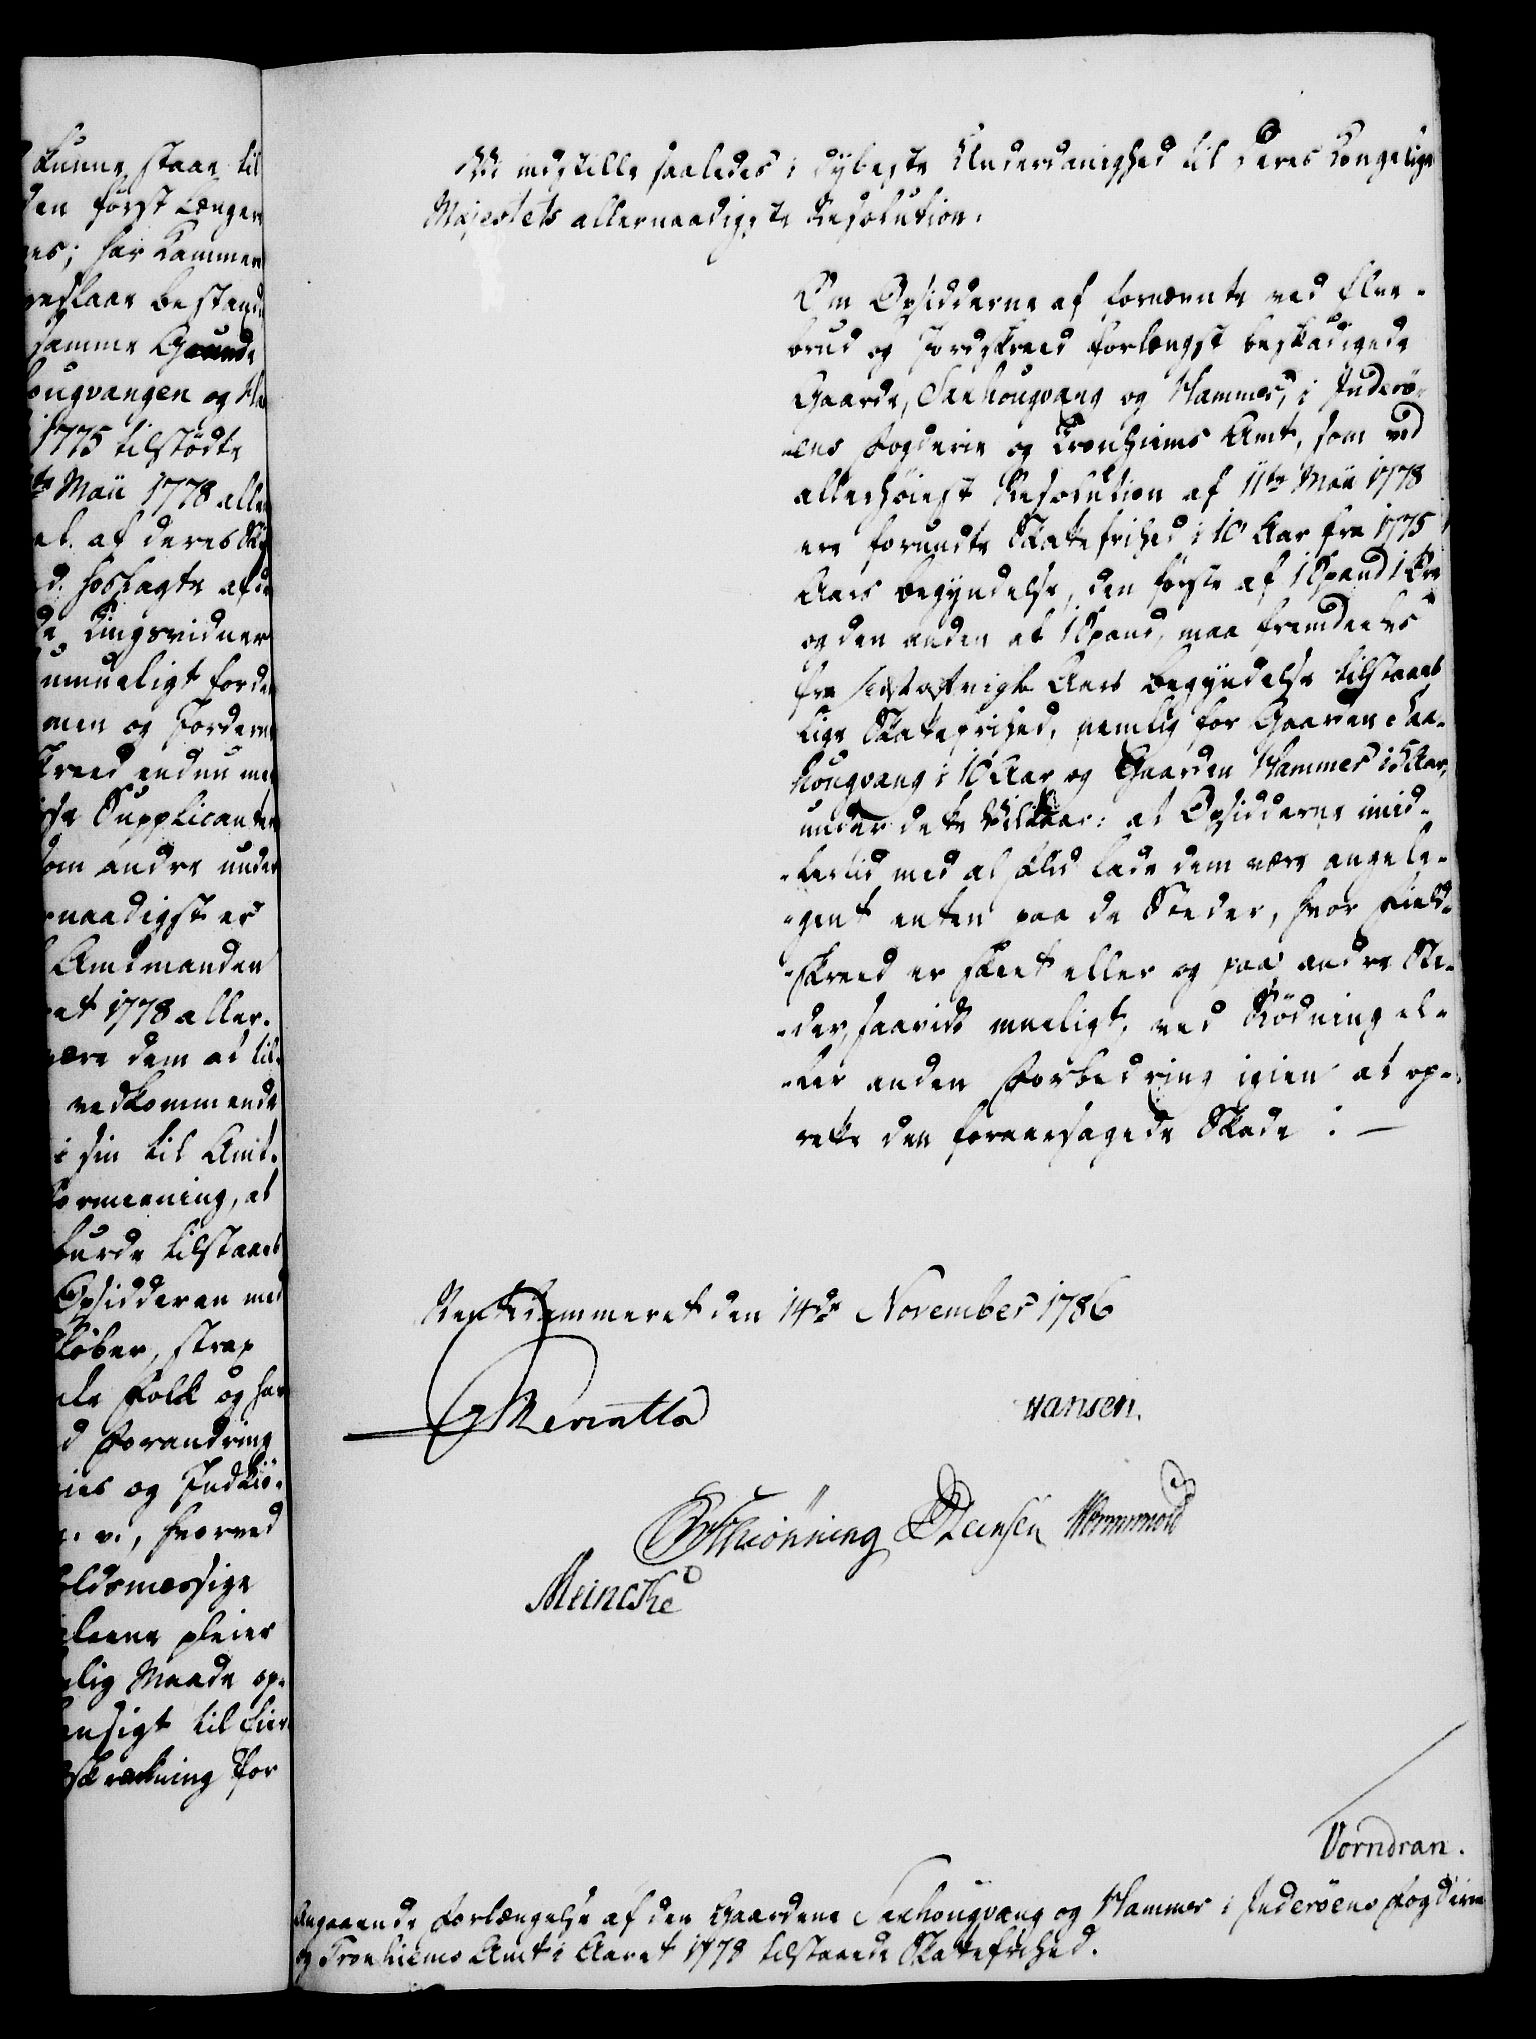 kunne staae til
den først Længere
es; har Kammer
reslaae bestandi
samme Grunde
ougvangen og Ha
1775 tilstødte
te Maii 1778 aller
el. af deres Ski
d. hoslagte afde
de Tingsvidner
umueligt forden
men og Jorderne
kreed endnu me
sse Supplicanter
som andre under
rnaadigst er
Amtmanden
ret 1778 aller-
være dem at til-
vedkommende
i sin til Amt-
Formeening, at
burde tilstaaes
Opsidderen med
kiøber, strax
ale Folk og har
d Forandring
ies og Indkiø-
m. v., hvorved
oldsmæssige
pleier
lig Maade op-
ensigt til Eier
strækning for
Vi indstille saaledes i dybeste Underdanighed til Deres Kongelige
Majestets allernaadigste Resolution.
Om Opsidderne af fornævnte ved Elve-
brud og Jordskreed forlængst beskadigede
Gaarde, Saxhougvang og Hammer, i Inderø-
ens Fogderie og Tronhiems Amt, som ved
allerhøiest Resolution af 11te Maii 1778
ere forundte Skattefrihed i 10 Aar fra 1775
Aars Begyndelse, den første af 1 Spand 1 Øre
og den anden af 1 Spand, maa fremdeeles
fra sidstafvigte Aars Begyndelse tilstaaes
lige Skattefrihed, nemlig for Gaarden Sax-
hougvang i 10 Aar og Gaarden Hammer i 5 Aar,
under dette Vilkaar: at Opsidderne imid-
lertid med al Flid lade dem være angele-
gent enten paa de Steder, hvor Field-
skreed er skeet eller og paa andre Ste-
der, saavidt mueligt, ved Rødning el-
ler anden Forbedring igien at op-
rette den foraarsagede Skade: —
Rentekammeret den 14de November 1786
Hansen.
Schiønning Steensen Hammond
Meincke
Vorndran.
Angaaende Forlængelse af den Gaardene Saxhougvang og Hammer i Inderøens Fogderie
og Tronhiems Amt i Aaret 1778 tilstaaede Skattefrihed.